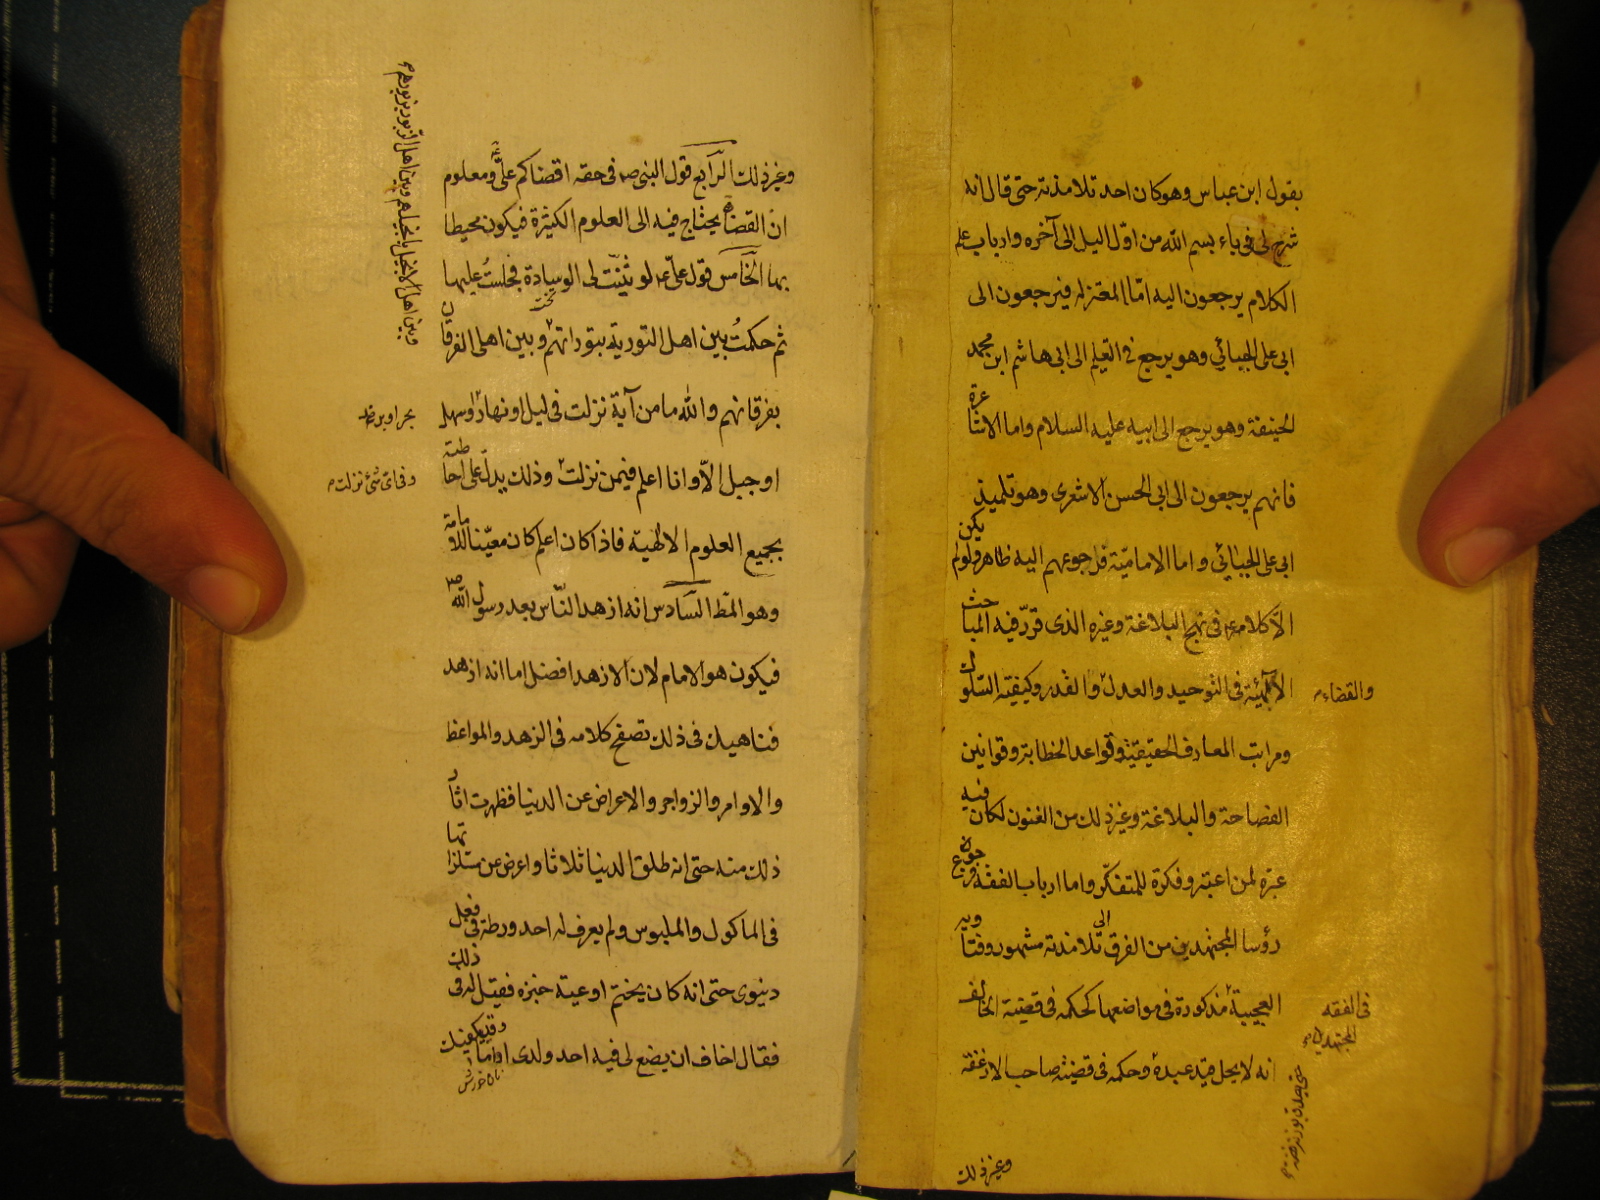 بقول ابن عباس وهو كان احد تلامذته حتى قال انه
شرح لى فى باء بسم الله من اوّل اليل الى آخره وارباب علم
الكلام يرجعون اليه امّا المعتزله فيرجعون الى
ابى على الجبائي وهو يرجع فى العلم الى ابى هاشم ابن محمد
الحنيفة وهو يرجع الى ابيه عليه السلام واما الاشاعرة
فانهم يرجعون الى ابى الحسن الاشعرى وهو تلميذ
ابى على الجبائي واما الاماميّة فرجوعهم اليه ظاهر ولو لم يكن
الاّ كلامه ع فى نهج البلاغة وغيره الذى قرّر فيه المباحث
الالهيّة فى التوحيد والعدل والقدر وكيفيّة السلوك
والقضاء
ومراتب المعارف الحقيقيّة وقواعد الخطابة وقوانين
الفصاحة والبلاغة وغير ذلك من الفنون لكان فيه
عبرة لمن اعتبر وفكرة للمتفكّر واما ارباب الفقه فرجوع
رؤسا المجتهدين من الفرق الى تلامذته مشهور وفتاويه
العجيبة مذكورة فى مواضعها كحكمه فى قضية الحالف
فى الفقه
انه لا يحل قيد عبده وحكمه فى قضيّة صاحب الارغفة
وغير ذلك
وغير ذلك الرّابع قول النبى ص فى حقه اقضاكم علىّ ومعلوم
انّ القضاء يحتاج فيه الى العلوم الكثيرة فيكون محيطا
بها الخامس قول علىّ ع لو ثنّيت لى الوسادة فجلستُ عليها
ثم حكمتُ بين اهل التورية بتوراتهم وبين اهل الفرقان
وبين اهل الانجيل بانجيلهم وبين اهل الزبور بزبورهم
بفرقانهم والله ما من آية نزلت فى ليل او نهار او سهل
بحر او بر
او جبل الاّ وانا اعلم فيمن نزلت وذلك يدلّ على احاطته
وفى اى شئ نزلت
بجميع العلوم الالهية فاذا كان اعلم كان معيّنا للامامة
وهو المط السّادس انه ازهد النّاس بعد رسول الله ص
فيكون هو الامام لان الازهد افضل اما انه ازهد
فناهيك فى ذلك تصفح كلامه فى الزهد والمواعظ
والاوامر والزواجر والاعراض عن الدنيا فظهرت اثار
ذلك منه حتى انه طلق الدنيا ثلاثا واعرض عن مستلذاتها
فى الماكول والملبوس ولم يعرف له احد ورطة فى فعل
دنيوى حتى انه كان يختم اوعية خبزه فقيل له فى ذلك
فقال اخاف ان يضع لى فيه احد ولدى اداما